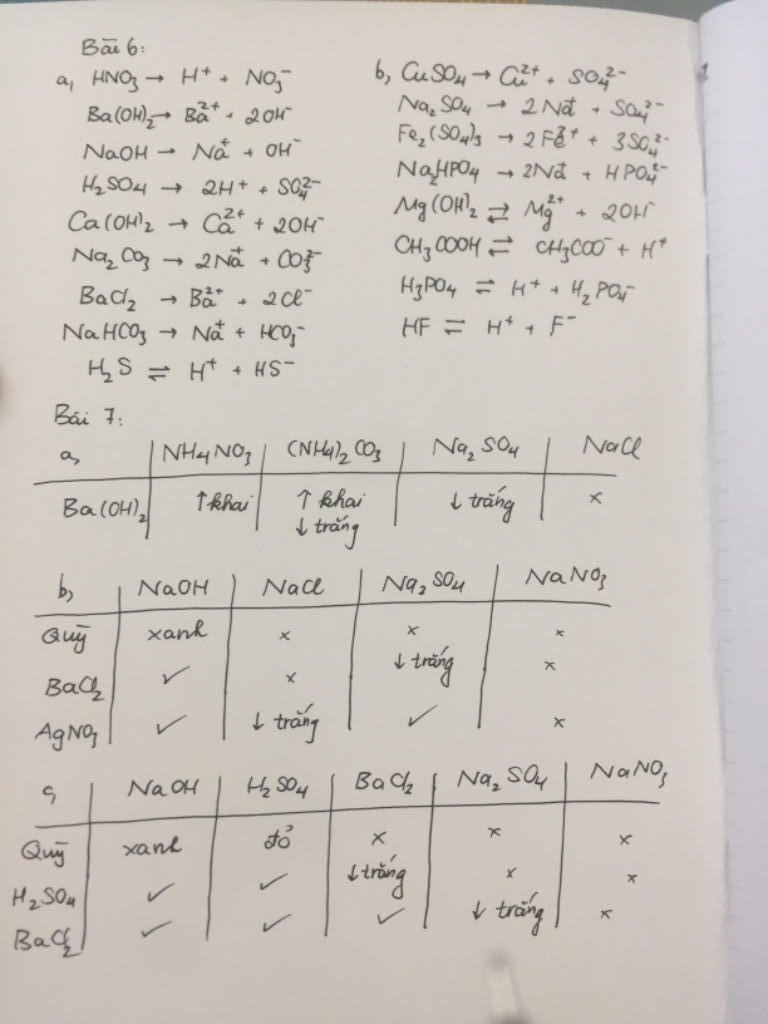 Bài 6:
a, HNO₃ → H⁺ + NO₃⁻
Ba(OH)₂ → Ba²⁺ + 2OH⁻
NaOH → Na⁺ + OH⁻
H₂SO₄ → 2H⁺ + SO₄²⁻
Ca(OH)₂ → Ca²⁺ + 2OH⁻
Na₂CO₃ → 2Na⁺ + CO₃²⁻
BaCl₂ → Ba²⁺ + 2Cl⁻
NaHCO₃ → Na⁺ + HCO₃⁻
H₂S ⇌ H⁺ + HS⁻
b, CuSO₄ → Cu²⁺ + SO₄²⁻
Na₂SO₄ → 2Na⁺ + SO₄²⁻
Fe₂(SO₄)₃ → 2Fe³⁺ + 3SO₄²⁻
Na₂HPO₄ → 2Na⁺ + HPO₄²⁻
Mg(OH)₂ ⇌ Mg²⁺ + 2OH⁻
CH₃COOH ⇌ CH₃COO⁻ + H⁺
H₃PO₄ ⇌ H⁺ + H₂PO₄⁻
HF ⇌ H⁺ + F⁻
Bài 7:
a, NH₄NO₃ (NH₄)₂CO₃ Na₂SO₄ NaCl
Ba(OH)₂ ↑ khai ↑ khai ↓ trắng ↓ trắng x
b, NaOH NaCl Na₂SO₄ NaNO₃
Quỳ xanh x x x
BaCl₂ ✓ x ↓ trắng x
AgNO₃ ✓ ↓ trắng ✓ x
c, NaOH H₂SO₄ BaCl₂ Na₂SO₄ NaNO₃
Quỳ xanh đỏ x x x
H₂SO₄ ✓ ✓ ↓ trắng x x
BaCl₂ ✓ ✓ ✓ ↓ trắng x